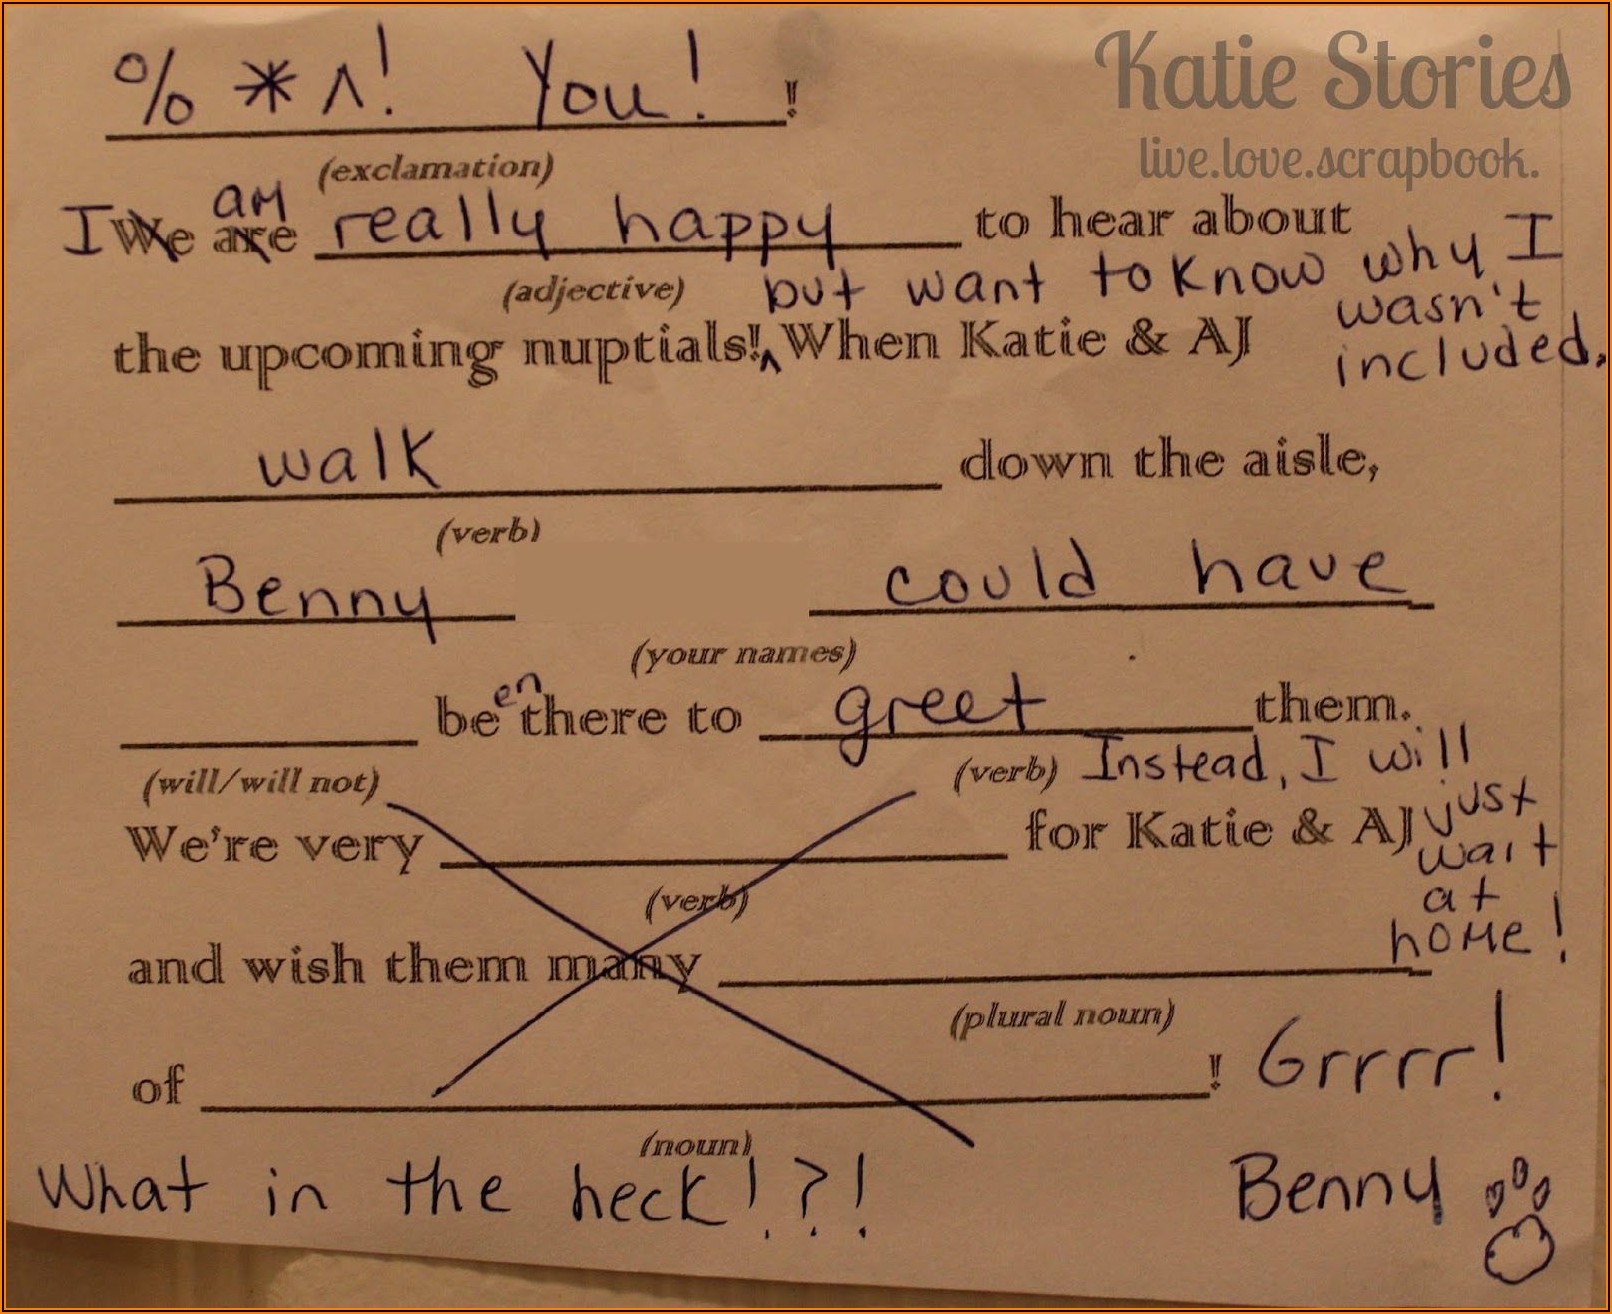 Katie Stories
live.love.scrapbook.
% * ^! You! !
(exclamation)
I We are am really happy to hear about
(adjective) but want to know why I
wasn't
included.
the upcoming nuptials! ^ When Katie & AJ
walk down the aisle,
(verb)
Benny could have
(your names)
been there to greet them.
(will/will not) (verb) Instead, I will
just
wait
at
home!
We're very for Katie & AJ
(verb)
and wish them many
(plural noun)
of ! Grrrr!
(noun)
What in the heck!?! Benny